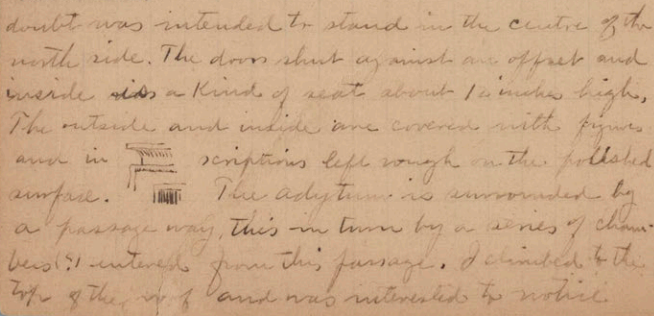 doubt was intended to stand in the centre of the
north side. The doors shut against an offset and
inside is a kind of seat about 12 inches high.
The outside and inside are covered with figures
and in scriptions left rough on the polished
surface. The adytum is surrounded by
a passage way, this in turn by a series of cham-
bers (9) entered from this passage. I climbed to the
top of the roof and was interested to notice